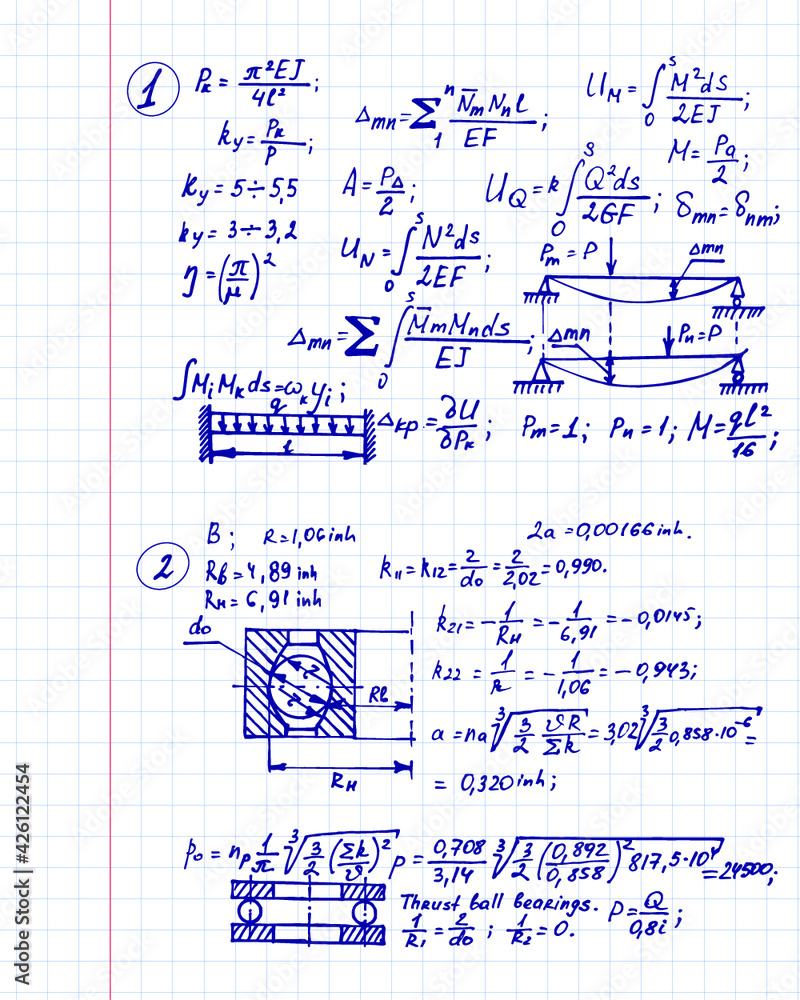 1
Pк = π²EJ / 4l² ;
kу = Pк / P ;
Kу = 5÷5,5
kу = 3÷3,2
η = (π/μ)²
Δmn = Σ₁ⁿ N̄m Nn l / EF ;
A = PΔ / 2 ;
U_N = ∫₀ˢ N²ds / 2EF ;
U_M = ∫₀ˢ M²ds / 2EJ ;
M = Pa / 2 ;
U_Q = k ∫₀ˢ Q²ds / 2GF ; δmn = δnm;
Pm = P
Δmn
Δmn = Σ ∫₀ˢ M̄m Mn ds / EJ ;
Δmn
Pn = P
∫ Mi Mк ds = ωк yi ;
q
l
Δкр = ∂U / ∂Pк ; Pm = 1; Pn = 1; M = ql² / 16 ;
2
B; R = 1,06 inh
2a = 0,00166 inh.
Rв = 4,89 inh
Rн = 6,91 inh
k₁₁ = k₁₂ = 2/do = 2/2,02 = 0,990.
k₂₁ = - 1/Rн = - 1/6,91 = - 0,0145;
k₂₂ = 1/R = - 1/1,06 = - 0,943;
do
r
r
Rв
Rн
a = na ∛(3/2 ϑR/Σk) = 3,02 ∛(3/2 0,858·10⁻⁶) =
= 0,320 inh;
po = np 1/π ∛(3/2 (Σk/ϑ)² P) = 0,708/3,14 ∛(3/2 (0,892/0,858)² 817,5·10⁴) = 24500;
Thrust ball bearings. P = Q / 0,8i ;
1/R₁ = 2/do ; 1/R₂ = 0.
Adobe Stock | #426122454